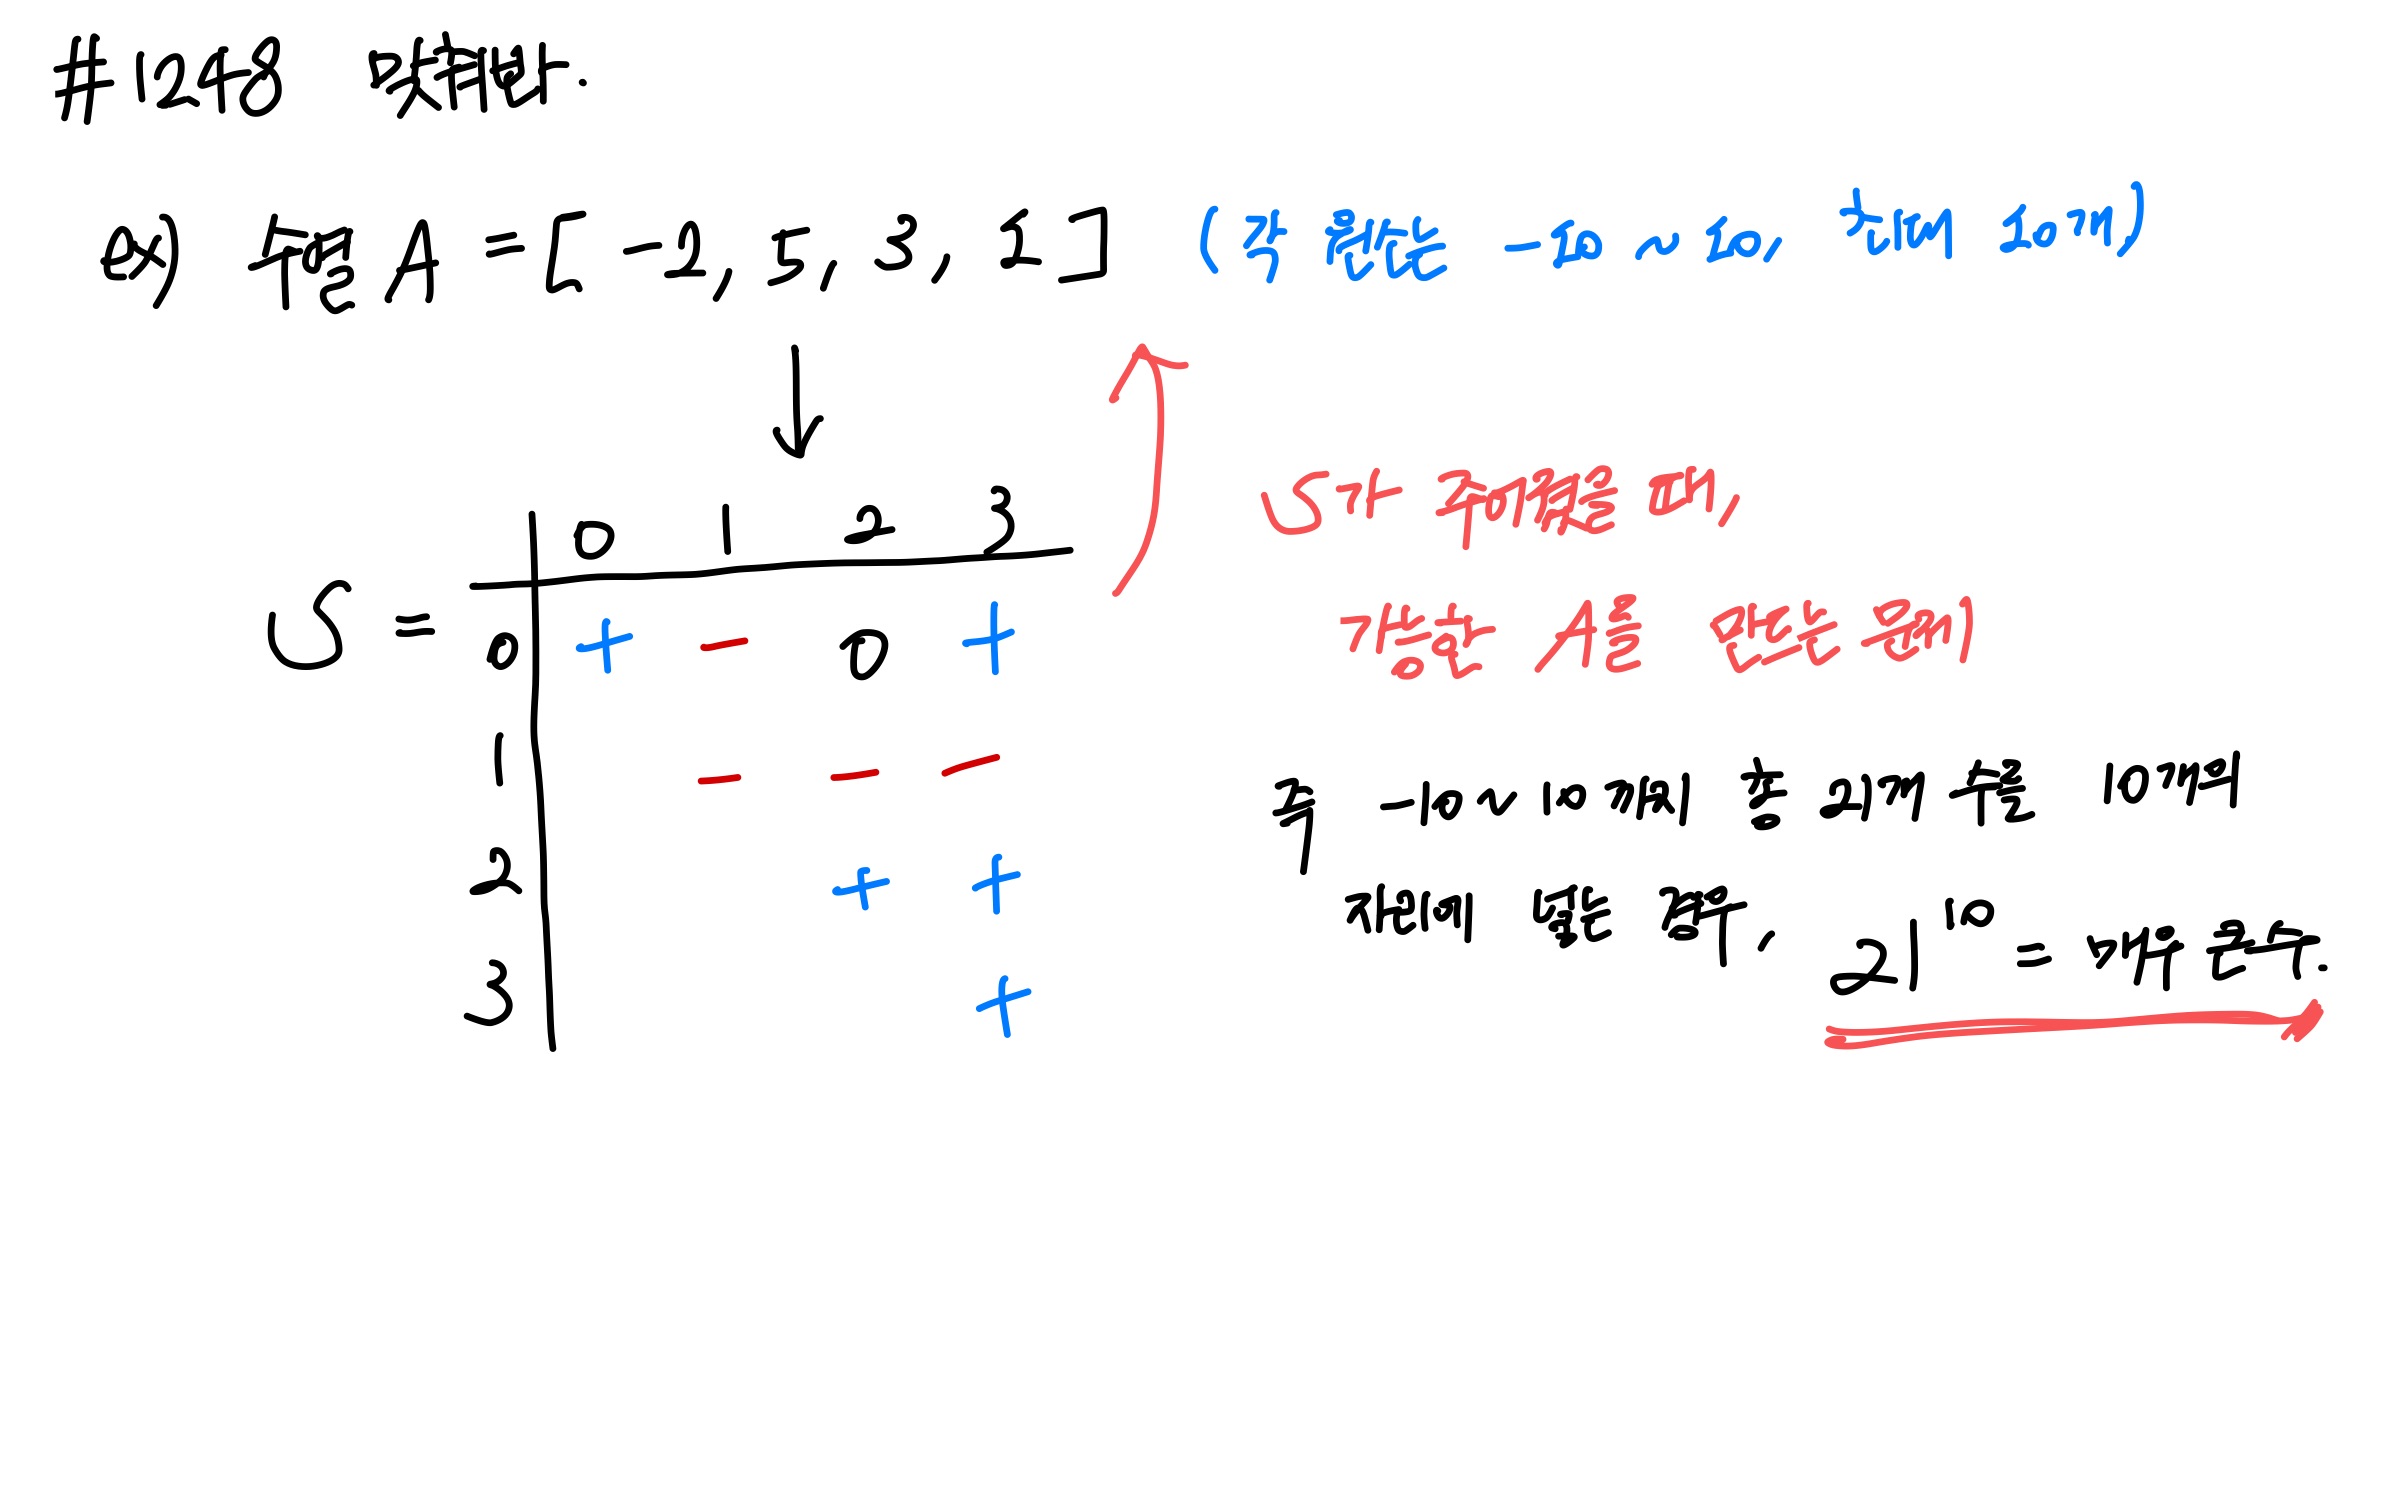 #1248 맞춰봐.
ex) 수열 A = [-2, 5, 3, 1] (각 원소는 -10 ~ 10, 최대 10개)
0 1 2 3
S = 0 + - 0 +
1 - - -
2 + +
3 +
S가 주어졌을 때,
가능한 A를 만드는 문제
즉 -10 ~ 10까지 총 21개 수를 10개의
자리에 뽑는 경우, 21^10 = 매우 큰 수.